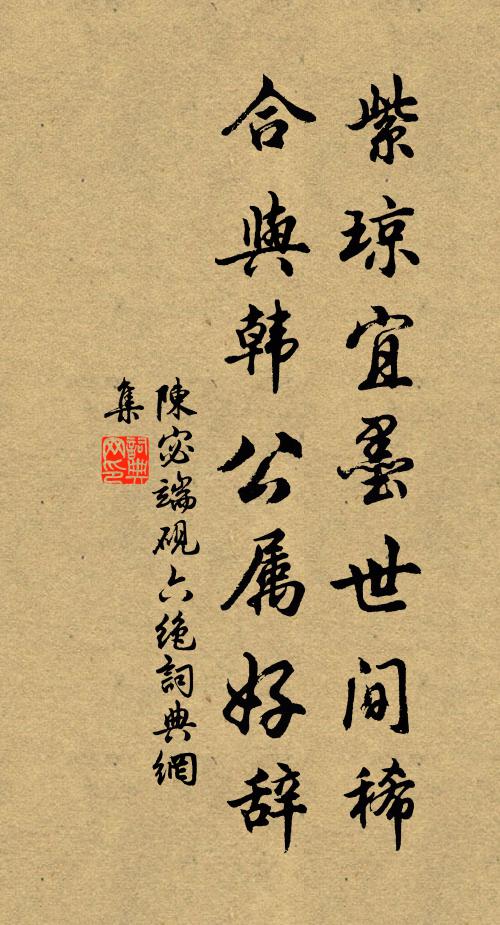 紫琼宜墨世间稀
合與韩公属好辞
陳宓端砚六绝詞典網
集
詞典网印